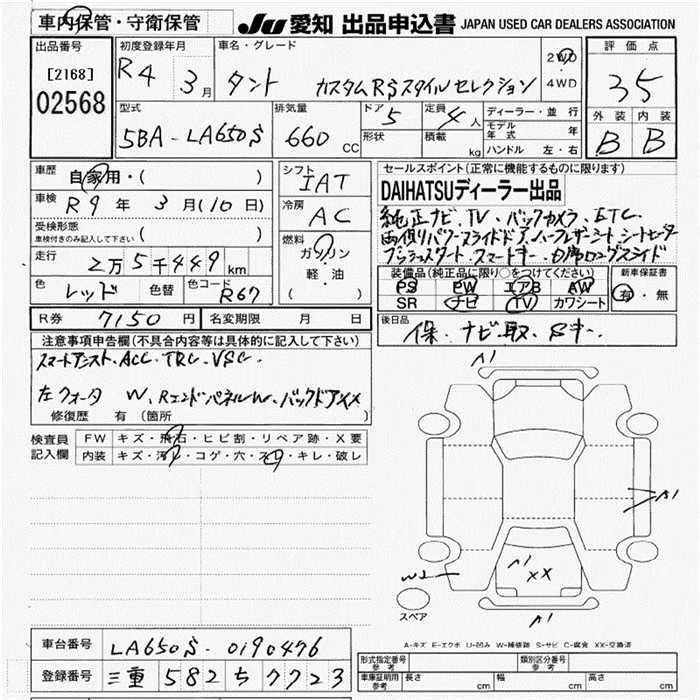 車内保管・守衛保管
JU 愛知 出品申込書 JAPAN USED CAR DEALERS ASSOCIATION
出品番号
[2168]
02568
初度登録年月
R4 3月
車名・グレード
タント カスタムRSスタイルセレクション
2WD・4WD
評価点
3.5
外装 内装
B B
型式
5BA-LA650S
排気量
660 CC
ドア 5
形状
定員 4人
積載 kg
ディーラー・並行
モデル年式 年
ハンドル 左・右
車歴
自家用・( )
車検
R9年 3月(10日)
受検形態
車検付きのみ記入して下さい ( )
走行
2万5千449km
色 レッド 色替 色コード R67
シフト
IAT
冷房
AC
燃料
ガソリン
軽・油
( )
セールスポイント(正常に機能するものに限ります)
DAIHATSUディーラー出品
純正ナビ、TV、バックカメラ、ETC、
両側パワースライドドア、ハーフレザーシート、シートヒーター
プッシュスタート、スマートキー、力席ロングスライド
装備品(純正品に限り○をつけてください)
PS PW エアB AW
SR ナビ TV カワシート
新車保証書
有・無
R券 7150円 名変期限 月 日
後日品
保、ナビ取、Sキー.
注意事項申告欄(不具合内容等は具体的に記入して下さい)
スマートアシスト、ACC、TRC、VSC.
左クォータ W、RエンドパネルW、バックドアXX
修復歴 有 (箇所 )
検査員記入欄
FW キズ・飛石・ヒビ割・リペア跡・X要
内装 キズ・汚れ・コゲ・穴・スレ・キレ・破レ
A1
A1
W2
A1
XX
A1
スペア
A-キズ E-エクボ U-凹み W-補修跡 S-サビ C-腐食 XX-交換済
車台番号 LA650S-0190476
登録番号 三重 582 ち 7723
形式指定番号 参考 類別区分番号 参考
車庫証明用 参考 長さ cm 幅 cm 高さ cm